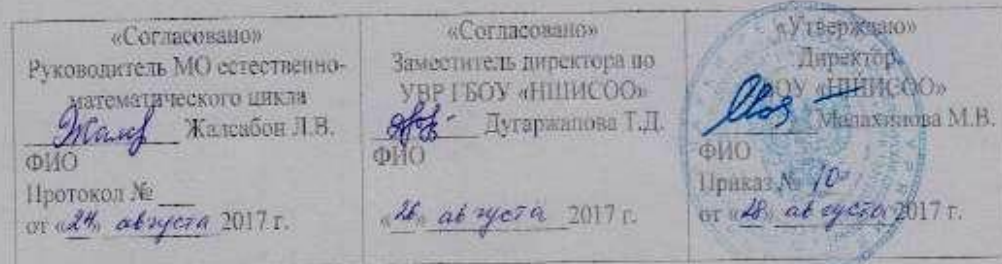 «Согласовано»
Руководитель МО естественно-
математического цикла
Жалсабон Л.В.
ФИО
Протокол № ___
от «24» августа 2017 г.
«Согласовано»
Заместитель директора по
УВР ГБОУ «НШИСОО»
Дугаржапова Т.Д.
ФИО
«26» августа 2017 г.
«Утверждаю»
Директор
«НШИСОО»
Малахинова М.В.
ФИО
Приказ № 10
от «28» августа 2017 г.